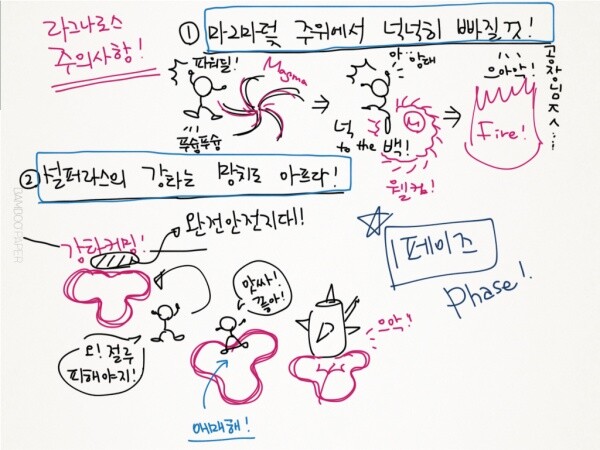 라그나로스
주의사항!
① 마그마덫 주위에서 넉넉히 빠질것!
파워딜!
Magma
푸슝푸슝
아..앙돼
넉
to the 백!
M
웰컴!
으아악!
Fire!
공장님ㅈㅅ...
② 설퍼라스의 강타는 망치도 아프다!
완전안전지대!
강타커밍!
오! 절루
피해야지!
앗싸!
꼴아!
애매해!
으악!
1페이즈
phase!
BAMBOO PAPER